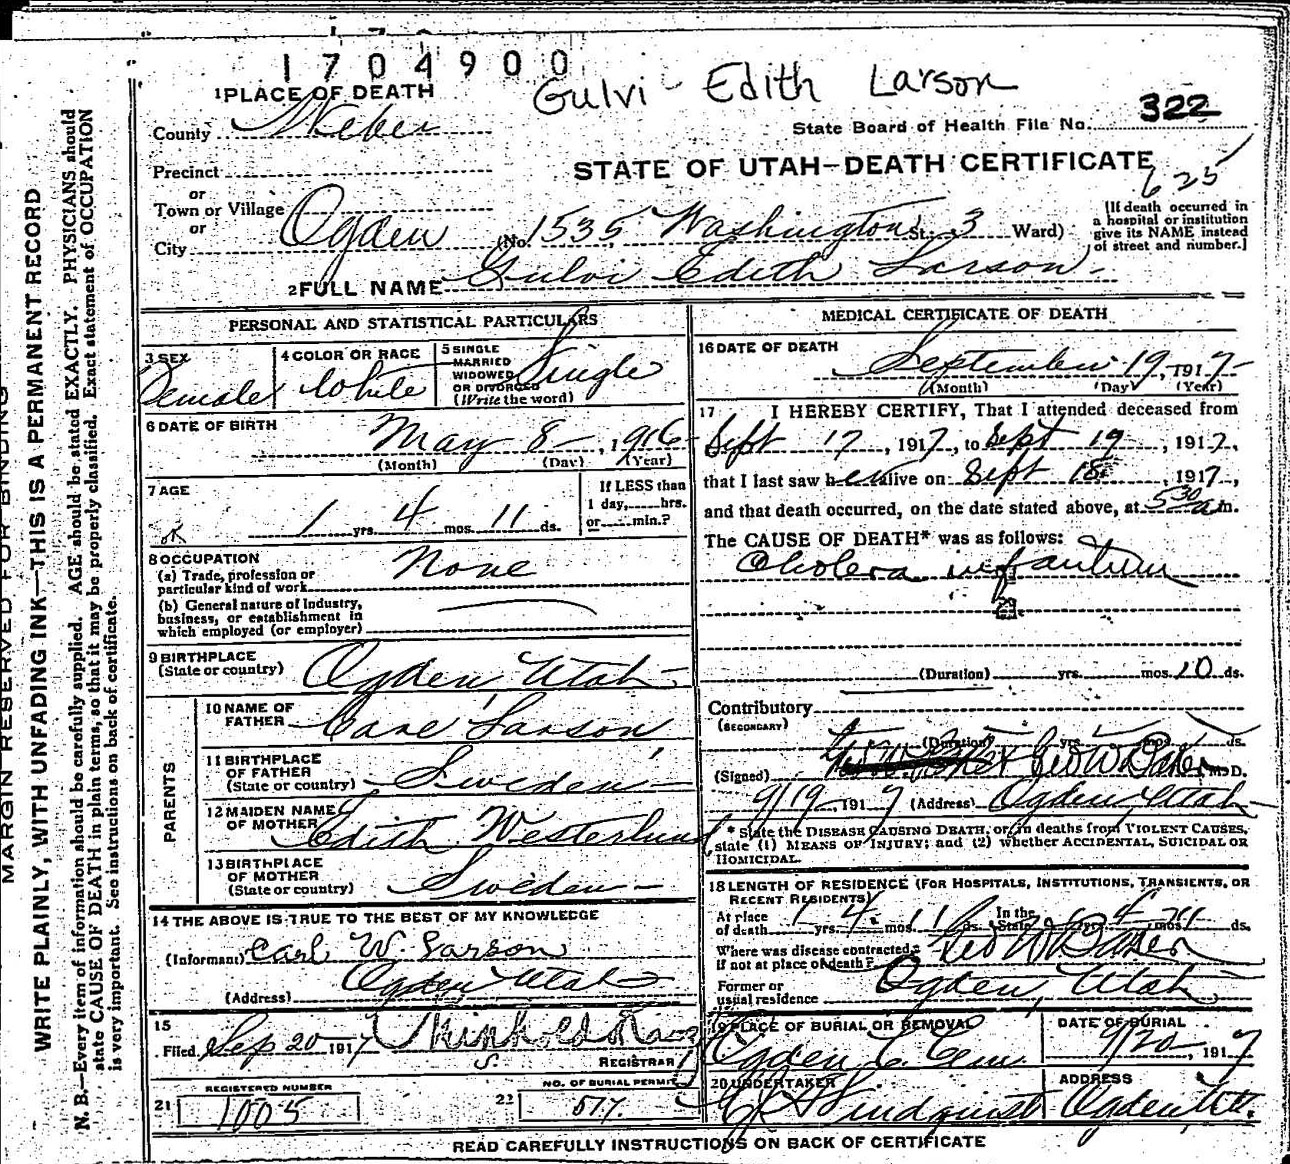 1704900
Gulvi Edith Larson
1 PLACE OF DEATH
County Weber
State Board of Health File No. 322
Precinct
STATE OF UTAH—DEATH CERTIFICATE
625
or
Town or Village
or
City Ogden (No. 1535 Washington St.; 3 Ward)
[If death occurred in
a hospital or institution
give its NAME instead
of street and number.]
2 FULL NAME Gulvi Edith Larson
PERSONAL AND STATISTICAL PARTICULARS
3 SEX Female
4 COLOR OR RACE White
5 SINGLE
MARRIED
WIDOWED
OR DIVORCED
(Write the word)
Single
6 DATE OF BIRTH
May 8 , 1916
(Month) (Day) (Year)
7 AGE
1 yrs. 4 mos. 11 ds.
ok
If LESS than
1 day, hrs.
or min.?
8 OCCUPATION
(a) Trade, profession or
particular kind of work
None
(b) General nature of Industry,
business, or establishment in
which employed (or employer)
9 BIRTHPLACE
(State or country) Ogden Utah
PARENTS
10 NAME OF
FATHER Carl Larson
11 BIRTHPLACE
OF FATHER
(State or country) Sweden
12 MAIDEN NAME
OF MOTHER Edith Westerlund
13 BIRTHPLACE
OF MOTHER
(State or country) Sweden
14 THE ABOVE IS TRUE TO THE BEST OF MY KNOWLEDGE
(Informant) Carl W. Larson
(Address) Ogden, Utah
15
Filed Sep 20 1917
REGISTRAR
REGISTERED NUMBER
21 1005
NO. OF BURIAL PERMIT
22 517
MEDICAL CERTIFICATE OF DEATH
16 DATE OF DEATH
September 19, 1917
(Month) (Day) (Year)
17 I HEREBY CERTIFY, That I attended deceased from
Sept 17, 1917, to Sept 19, 1917,
that I last saw her alive on Sept 18, 1917,
and that death occurred, on the date stated above, at 5 30 a m.
The CAUSE OF DEATH* was as follows:
Cholera infantum
(Duration) yrs. mos. 10 ds.
Contributory
(SECONDARY)
(Duration) yrs. mos. ds.
(Signed) Geo W Baker M. D.
9/19 1917 (Address) Ogden, Utah
* State the DISEASE CAUSING DEATH, or, in deaths from VIOLENT CAUSES,
state (1) MEANS OF INJURY; and (2) whether ACCIDENTAL, SUICIDAL OR
HOMICIDAL.
18 LENGTH OF RESIDENCE (FOR HOSPITALS, INSTITUTIONS, TRANSIENTS, OR
RECENT RESIDENTS)
At place
of death 1 yrs. 4 mos. 11 ds. In the
State 1 yrs. 4 mos. 11 ds.
Where was disease contracted,
if not at place of death? Geo W Baker
Former or
usual residence Ogden, Utah
19 PLACE OF BURIAL OR REMOVAL
Ogden C. Cem.
DATE OF BURIAL
9/20, 1917
20 UNDERTAKER
Lindquist
ADDRESS
Ogden Ut.
READ CAREFULLY INSTRUCTIONS ON BACK OF CERTIFICATE
MARGIN RESERVED FOR BINDING
WRITE PLAINLY, WITH UNFADING INK—THIS IS A PERMANENT RECORD
N. B.—Every item of information should be carefully supplied. AGE should be stated EXACTLY. PHYSICIANS should
state CAUSE OF DEATH in plain terms, so that it may be properly classified. Exact statement of OCCUPATION
is very important. See instructions on back of certificate.